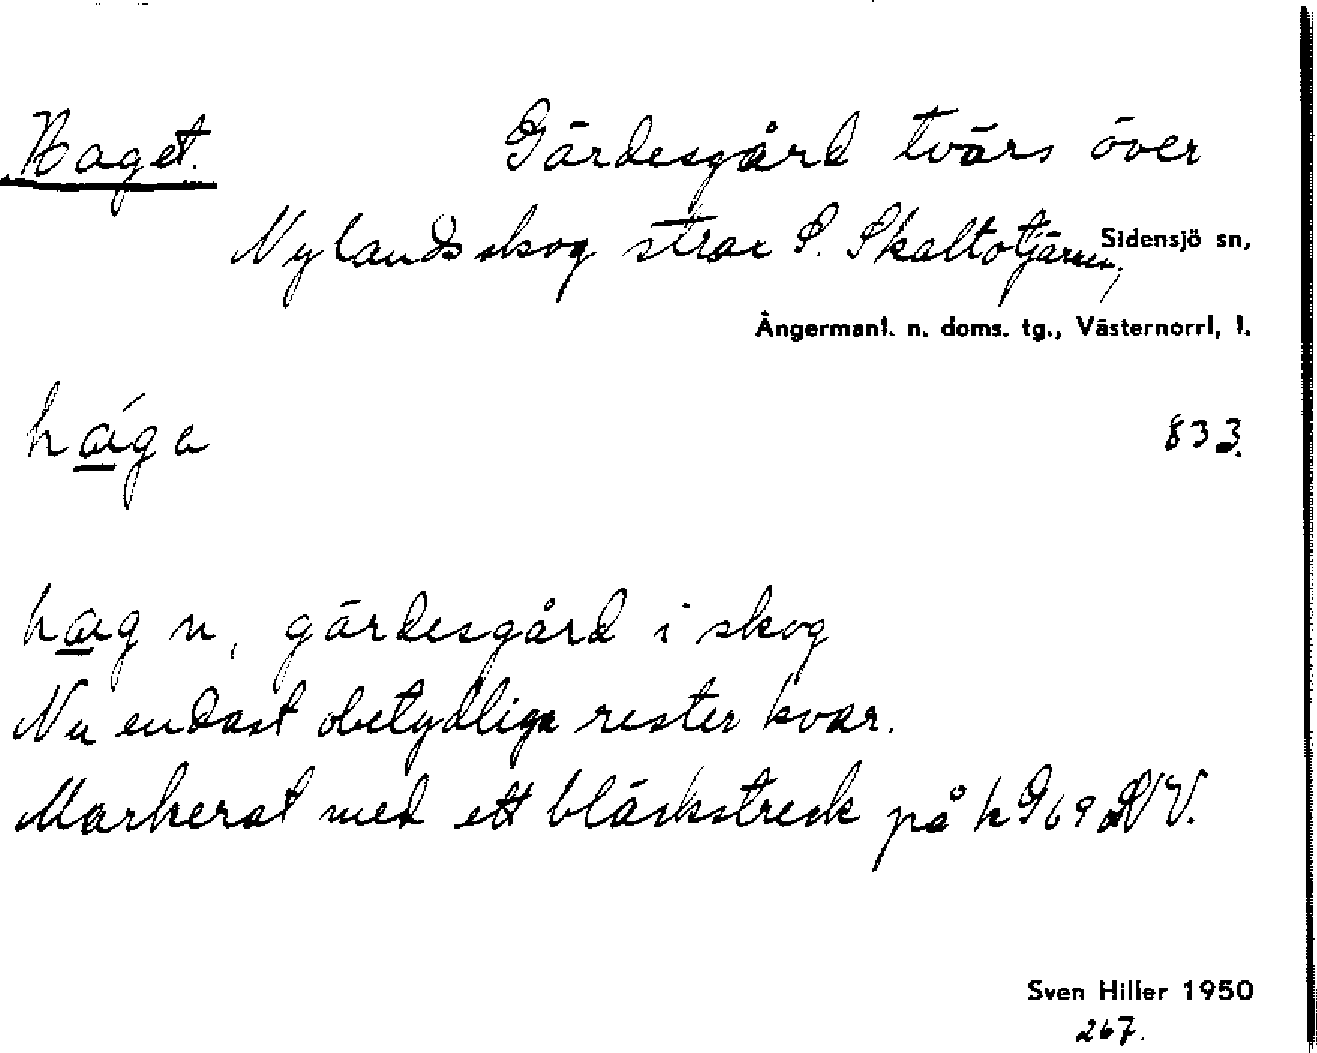 Haget. Gärdesgård tvärs över
Nylandsskog strax S. Skaltotjärnen,
Sidensjö sn,
Ångermanl. n. doms. tg., Västernorrl, l.
hága 833.
hag n, gärdesgård i skog
Nu endast obetydliga rester kvar.
Markerat med ett bläckstreck på k 969 NV.
Sven Hiller 1950
267.